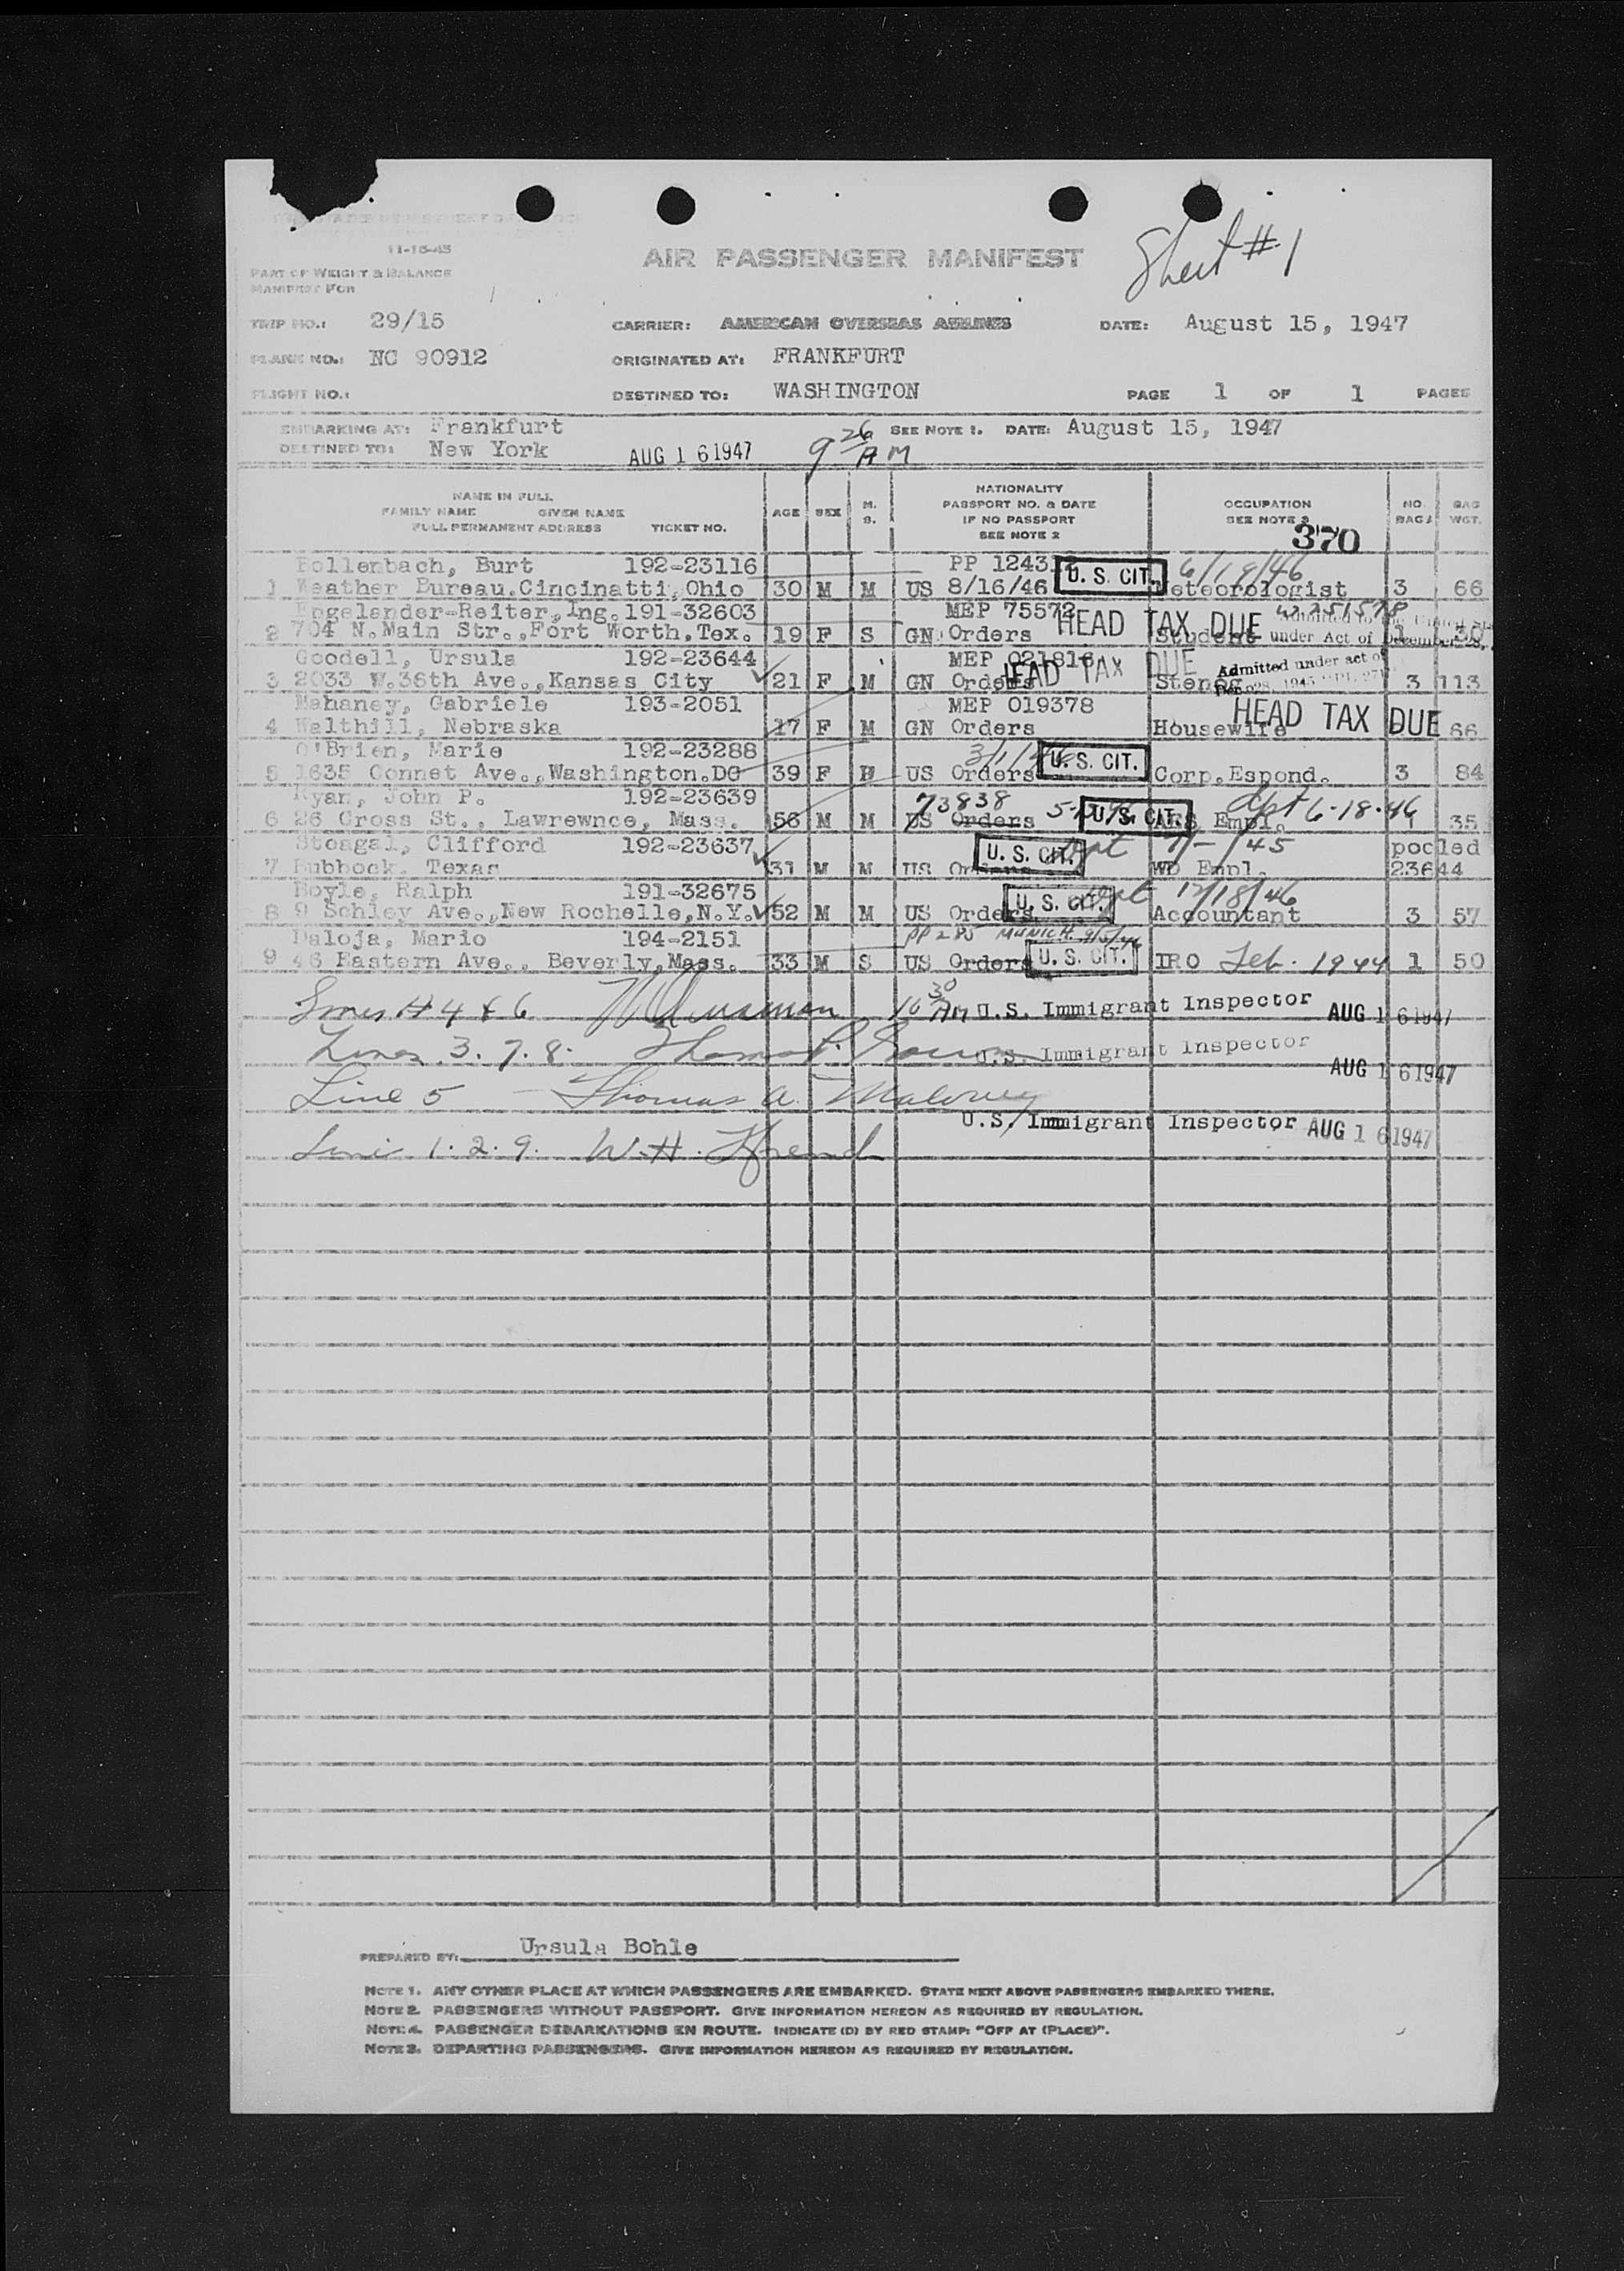 11-15-45
PART OF WEIGHT & BALANCE
MANIFEST FOR
AIR PASSENGER MANIFEST
Sheet #1
TRIP NO.: 29/15 CARRIER: AMERICAN OVERSEAS AIRLINES DATE: August 15, 1947
PLANE NO.: NC 90912 ORIGINATED AT: FRANKFURT
FLIGHT NO.: DESTINED TO: WASHINGTON PAGE 1 OF 1 PAGES
EMBARKING AT: Frankfurt SEE NOTE 1. DATE: August 15, 1947
DESTINED TO: New York AUG 16 1947 9 26 AM
NAME IN FULL
FAMILY NAME GIVEN NAME
FULL PERMANENT ADDRESS TICKET NO.
AGE SEX M. S.
NATIONALITY
PASSPORT NO. & DATE
IF NO PASSPORT
SEE NOTE 2
OCCUPATION
SEE NOTE 3
NO. BAGS BAG WGT.
370
Bollenbach, Burt 192-23116 PP 1243 U. S. CIT. 6/19/46
1 Weather Bureau.Cincinatti,Ohio 30 M M US 8/16/46 Meteorologist 3 66
Engelander-Reiter,Ing.191-32603 MEP 75572 HEAD TAX DUE Admitted to the United
2 704 N.Main Str.,Fort Worth.Tex. 19 F S GN Orders Student under Act of December 28, 1 30
Goodell, Ursula 192-23644 MEP 021816 HEAD TAX DUE Admitted under act of
3 2033 W.36th Ave.,Kansas City 21 F M GN Orders Stenog. Dec. 28, 1945 3 113
Mahaney, Gabriele 193-2051 MEP 019378 HEAD TAX DUE
4 Walthill, Nebraska 17 F M GN Orders Housewife 66
O'Brien, Marie 192-23288 U. S. CIT.
5 1635 Connet Ave.,Washington.DC 39 F US Orders Corp.Espond. 3 84
Ryan, John P. 192-23639 73838 U. S. CIT. dpt 6-18-46
6 26 Cross St., Lawrewnce, Mass. 56 M M US Orders Empl. 1 35
Stoagal, Clifford 192-23637 U. S. CIT. dpt 7/-/45 pooled
7 Bubbock. Texas 31 M M US Orders WD Empl. 23644
Boyle, Ralph 191-32675 U. S. CIT. dpt 12/18/46
8 9 Schley Ave.,New Rochelle,N.Y. 52 M M US Orders Accountant 3 57
Daloja, Mario 194-2151 PP 285 MUNICH 9/5/46
9 46 Eastern Ave., Beverly,Mass. 33 M S US Orders U. S. CIT. IRO Feb. 1944 1 50
Lines # 4 & 6 10 30 AM U.S. Immigrant Inspector AUG 16 1947
Lines 3. 7. 8. Thomas P. U.S. Immigrant Inspector AUG 16 1947
Line 5 - Thomas A. Maloney
U.S. Immigrant Inspector AUG 16 1947
Line 1. 2. 9. W. H.
PREPARED BY: Ursula Bohle
NOTE 1. ANY OTHER PLACE AT WHICH PASSENGERS ARE EMBARKED. STATE NEXT ABOVE PASSENGERS EMBARKED THERE.
NOTE 2. PASSENGERS WITHOUT PASSPORT. GIVE INFORMATION HEREON AS REQUIRED BY REGULATION.
NOTE 4. PASSENGER DEBARKATIONS EN ROUTE. INDICATE (D) BY RED STAMP: "OFF AT (PLACE)".
NOTE 3. DEPARTING PASSENGERS. GIVE INFORMATION HEREON AS REQUIRED BY REGULATION.